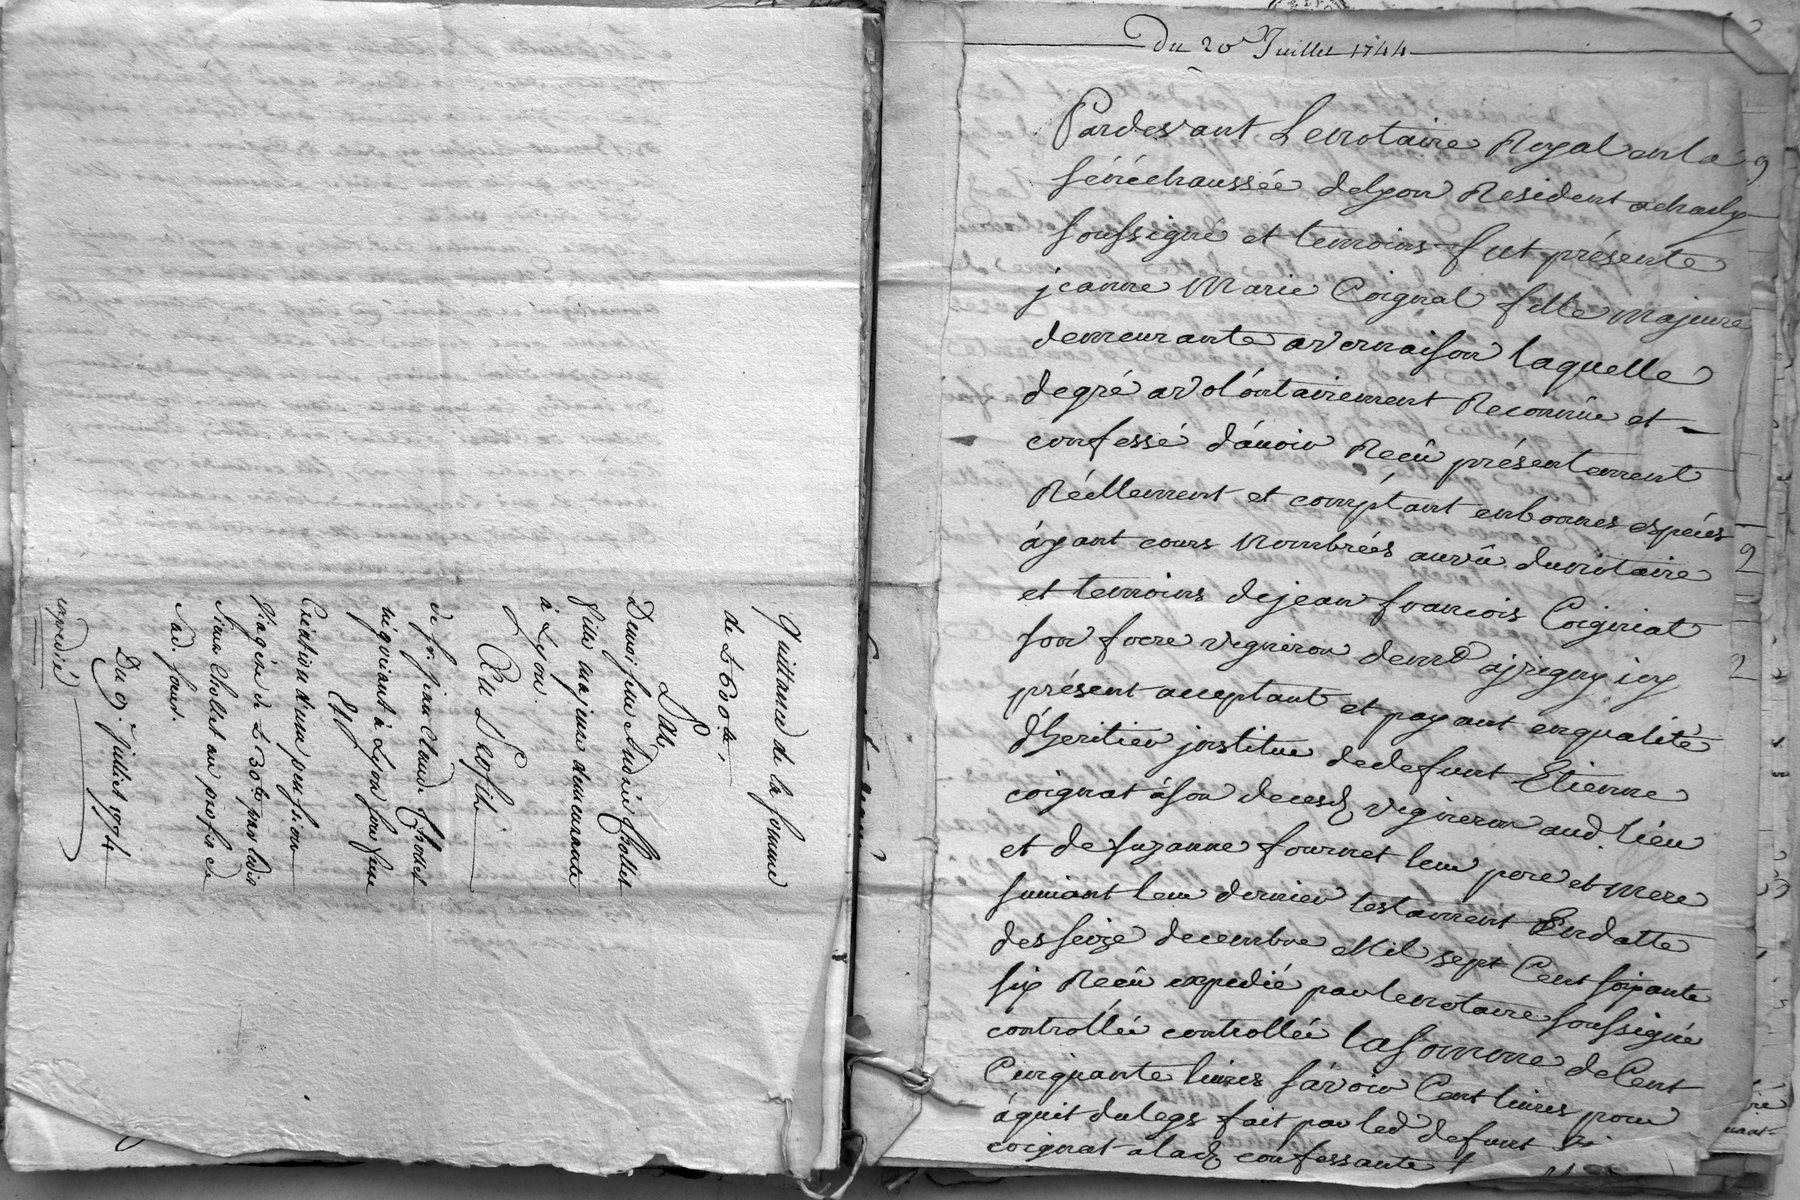 Quittance de la somme
de L 600 tt.
Par
Demoiselle Andrée Chollet
fille majeure demeurante
à Lyon.
Au Profit
de sr. jean Claude Chollet
négociant à Lyon son frere
Et
Création d'une pension
viagere de L 30 tt par ledit
sieur Chollet au profit de
lad. soeur.
Du 9. Juillet 1774
expedié
Du 20 Juillet 1744
Pardevant Le notaire Royal en la
sénéchaussée de lyon Resident a charly
soussigné et temoins fut présente
jeanne Marie Coignat fille majeure
demeurante a vernaison laquelle
de gré a volóntairement Reconnüe et
confessé d'auoir Reçû présentement
Réellement et comptant en bonnes espéces
áyant cours Nombrées au vû du notaire
et temoins de jean francois Coigniat
son frere vigneron demt a jrigny icy
présent acceptant et payant en qualité
d'heritier jnstitue de defunt Etienne
coignat á son decesd vigneron aud. lieu
et de suzanne fournet leur pere et mere
suiuant leur dernier testament En datte
des seize decembre Mil sept Cent soixante
six Reçû expedié par le notaire soussigné
controllée controllée la somme de Cent
Cinquante liures sávoir Cent liures pour
áquit du legs fait par led defunt
coignat a lad confessante